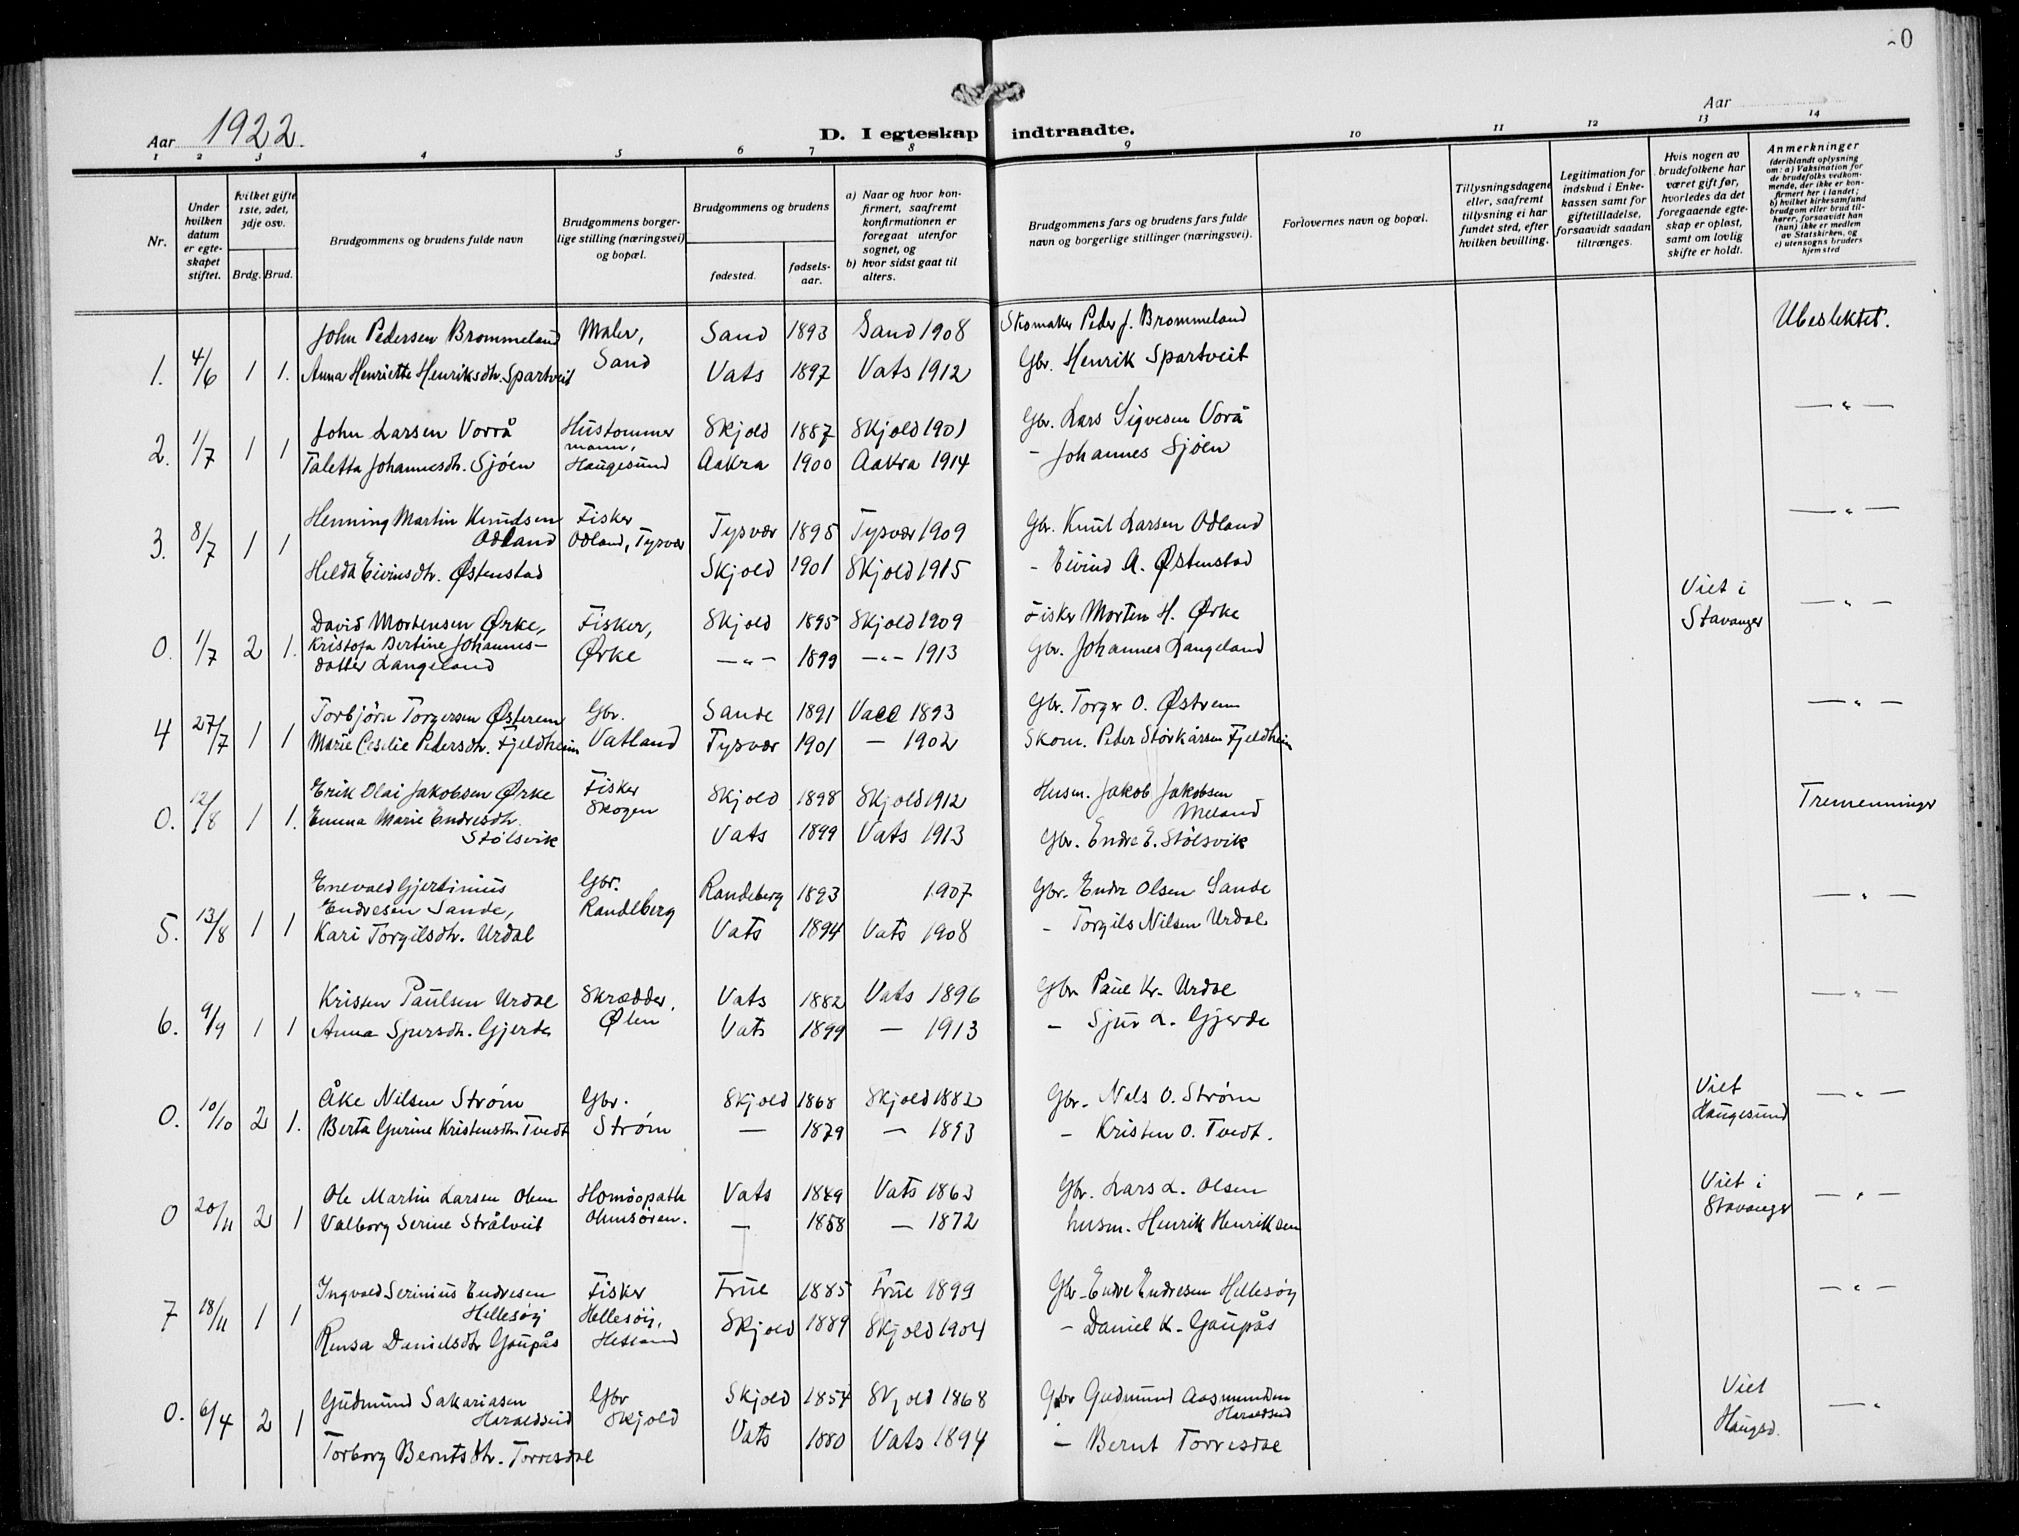 0
Aar 1922.
D. I egteskap indtraadte.
Aar
1 2 3 4 5 6 7 8 9 10 11 12 13 14
Nr.
Under hvilken datum er egteskapet stiftet.
hvilket gifte 1ste, 2det, 3dje osv.
Brdg. Brud.
Brudgommens og brudens fulde navn
Brudgommens borgerlige stilling (næringsvei) og bopæl.
Brudgommens og brudens
fødested.
fødselsaar.
a) Naar og hvor konfirmert, saafremt konfirmationen er foregaat utenfor sognet, og
b) hvor sidst gaat til alters.
Brudgommens fars og brudens fars fulde navn og borgerlige stillinger (næringsvei).
Forlovernes navn og bopæl.
Tillysningsdagene eller, saafremt tillysning ei har fundet sted, efter hvilken bevilling.
Legitimation for indskud i Enkekassen samt for giftetilladelse, forsaavidt saadan tiltrænges.
Hvis nogen av brudefolkene har været gift før, hvorledes da det foregaaende egteskap er opløst, samt om lovlig skifte er holdt.
Anmerkninger
(deriblandt oplysning om: a) Vaksination for de brudefolks vedkommende, der ikke er konfirmert her i landet; b) hvilket kirkesamfund brudgom eller brud tilhører, forsaavidt han (hun) ikke er medlem av Statskirken, og c) utensogns bruders hjemsted
John Pedersen Brommeland Maler, Sand 1893 Sand 1908 Skomaker Peder J. Brommeland Ubeslektet.
1. 4/6 1 1. Anna Henriette Henriksdtr. Spartveit Sand Vats 1897 Vats 1912 Gbr. Henrik Spartveit
John Larsen Vorrå Hustommermann, Skjold 1887 Skjold 1901 Gbr. Lars Sigvesen Vorå — " —
2. 1/7 1 1 Taletta Johannesdtr. Sjöen Haugesund Aakra 1900 Aakra 1914 - Johannes Sjöen
Henning Martin Knudsen Fisker
3. 8/7 1 1 Odland Odland, Tysvær Tysvær 1895 Tysvær 1909 Gbr. Knut Larsen Odland — " —
Helda Eivinsdtr. Østenstad Skjold 1901 Skjold 1915 - Eivind A. Østenstad
David Mortensen Ørke, Fisker, Skjold 1895 Skjold 1909 Fisker Morten H. Ørke Viet i Stavanger — " —
0. 1/7 2 1. Kristofa Bertine Johannesdatter Langeland Ørke — " — 1899 — " — 1913 Gbr. Johannes Langeland
Torbjörn Torgersen Østerem Gbr. Sande 1891 Vacc 1893 Gbr. Torger O. Østrem — " —
4 27/7 1 1 Marie Cesilie Pedersdtr. Fjeldheim Vatland Tysvær 1901 — 1902 Skom. Peder Störkårsen Fjeldheim
Erik Olai Jakobsen Ørke Fisker Skjold 1898 Skjold 1912 Husm. Jakob Jakobsen Meland Tremenninger
0. 12/8 1 1. Emma Marie Endresdtr. Stölsvik Skogen Vats 1899 Vats 1913 Gbr. Endre E. Stölsvik
Enevald Gjertinius Endresen Sande, Gbr. Randeberg Randeberg 1893 1907 Gbr. Endre Olsen Sande — " —
5. 13/8 1 1 Kari Torgilsdtr. Urdal Vats 1894 Vats 1908 - Torgils Nilsen Urdal
Kristen Paulsen Urdal Skrædder, Vats 1882 Vats 1896 Gbr Paul Kr. Urdal — " —
6. 9/9 1 1 Anna Sjursdtr. Gjerde Ølen Vats 1899 — 1913 - Sjur L. Gjerde
Åke Nilsen Ström Gbr. Skjold 1868 Skjold 1882 Gbr. Nils O. Ström Viet Haugesund — " —
0. 10/10 2 1. Berta Gurine Kristensdtr Tvedt Ström — 1879 — 1893 - Kristen O. Tvedt.
Ole Martin Larsen Ohm Homöopath Vats 1849 Vats 1863 Gbr. Lars L. Olsen Viet i Stavanger — " —
0 20/11 2 1 Valborg Serine Stråtveit Ohmsören. — 1858 — 1872 husm. Henrik Henriksen
Ingvald Serinius Endresen Hellesöy Fisker Frue 1885 Frue 1899 Gbr - Endre Endresen Hellesöy — " —
7 18/11 1 1 Rensa Danielsdtr Gaupås Hellesöy, Hetland Skjold 1889 Skjold 1904 - Daniel K. Gaupås
Gudmund Sakariassen Haraldseid Gbr Skjold 1854 Skjold 1868 Gbr Gudmund Aasmundsen Haraldseid Viet Haugsd. — "
0. 6/4 2 1 Torborg Berntsdtr. Torresdal Skjold Vats 1880 Vats 1894 - Bernt Torresdal